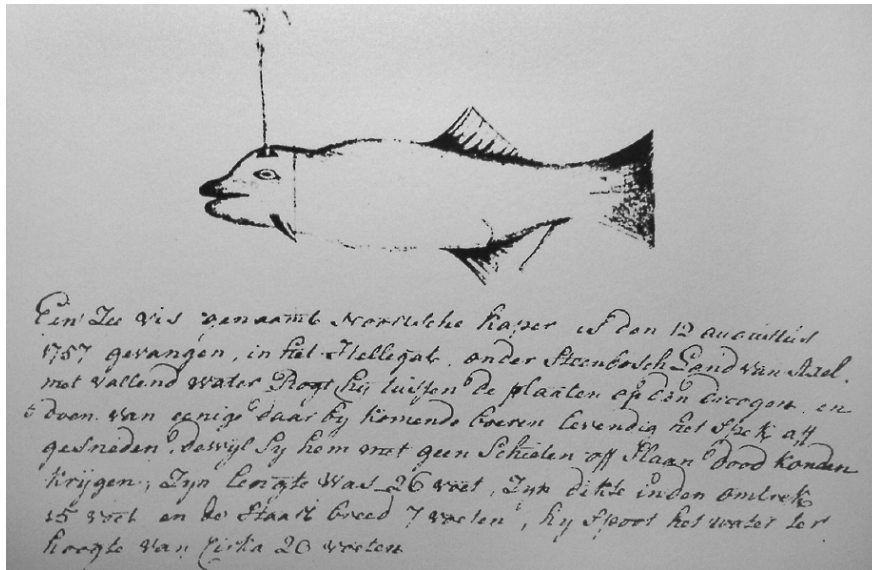 Een Zee vis genaamt Noortsche kaper is den 12 augustus
1757 gevangen, in het Hellegat, onder Steenbosch Land van Axel.
met vallend water Bogt hy tussen de plaaten op den droogen en
doen van eenige daar by komende boeren levendig het spek aff
gesneden, dewyl sy hem met geen schieten off slaan dood konden
krygen, Zyn lengte was 26 voet, Zyn dikte in den omtrek
15 voet en de Staart breed 7 voeten, hy spoot het water ter
hoogte van Cirka 20 voeten